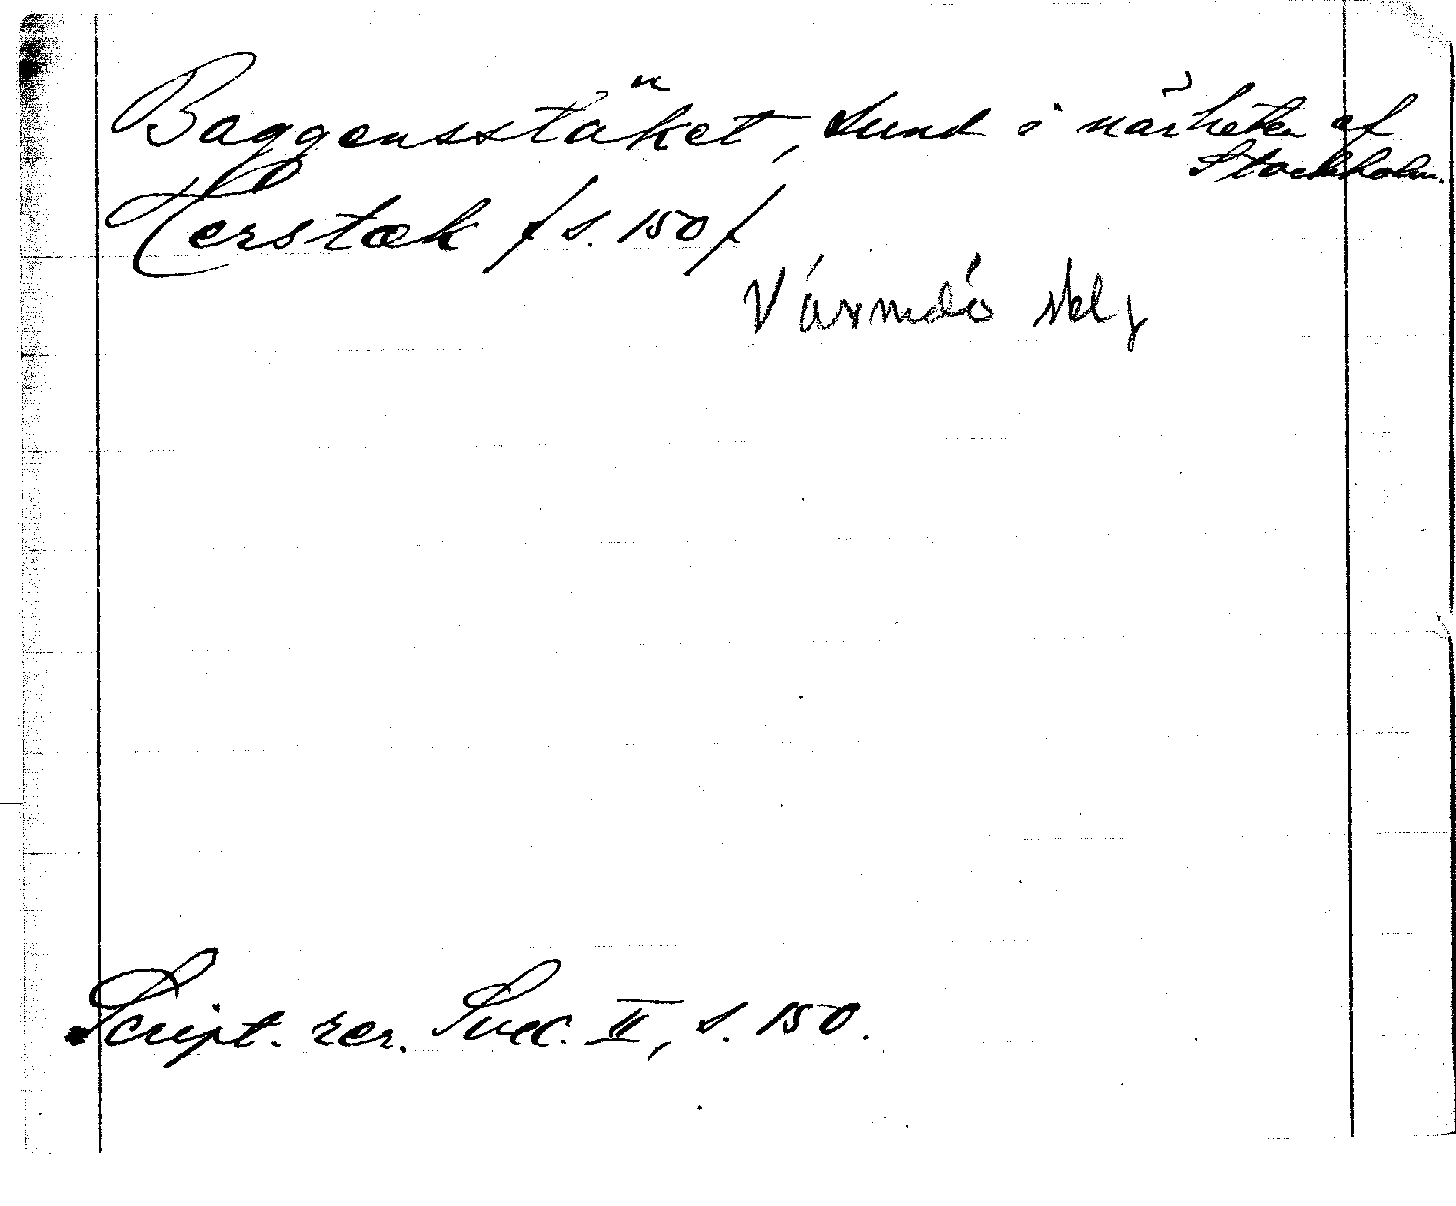 Baggensstäket, sund i närheten af Stockholm.
Herstæk / s. 150 /
Värmdö skg
Script. rer. Svec. II, s. 150.